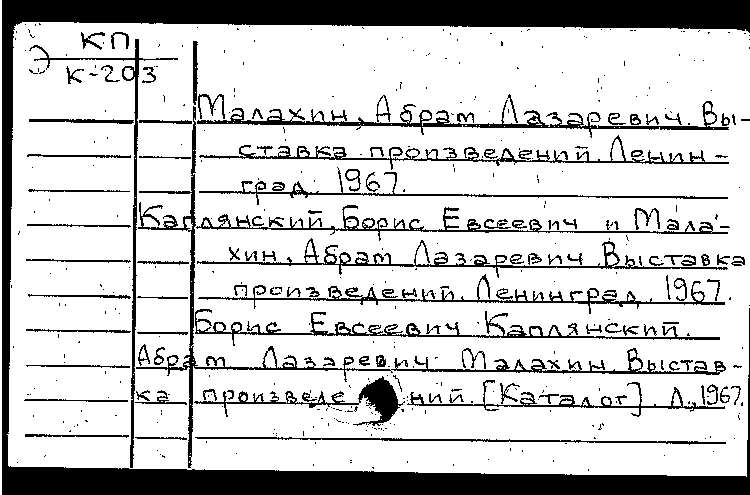 Э КП
К-203
Малахин, Абрам Лазаревич. Вы-
ставка произведений. Ленин-
град. 1967.
Каплянский, Борис Евсеевич и Мала-
хин, Абрам Лазаревич. Выставка
произведений. Ленинград. 1967.
Борис Евсеевич Каплянский.
Абрам Лазаревич Малахин. Выстав-
ка произведений. [Каталог]. Л., 1967.